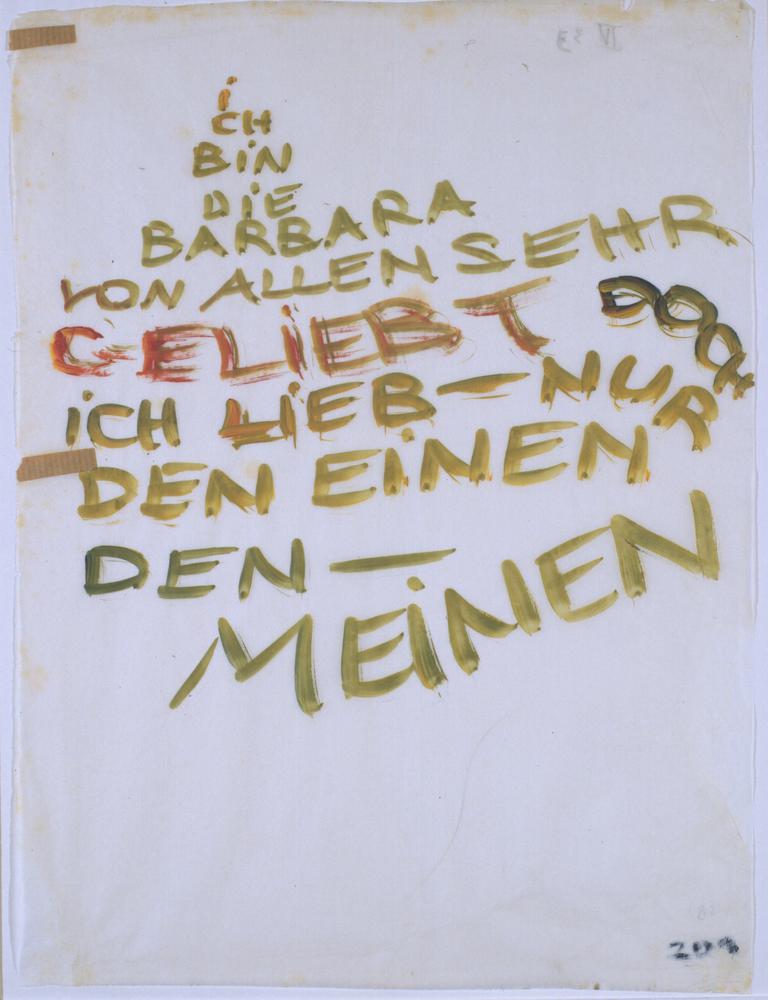 iCH
BiN
DiE
BARBARA
VON ALLEN SEHR
GELiEBT DOCH
iCH LiEB— NUR
DEN EiNEN
DEN —
MEiNEN